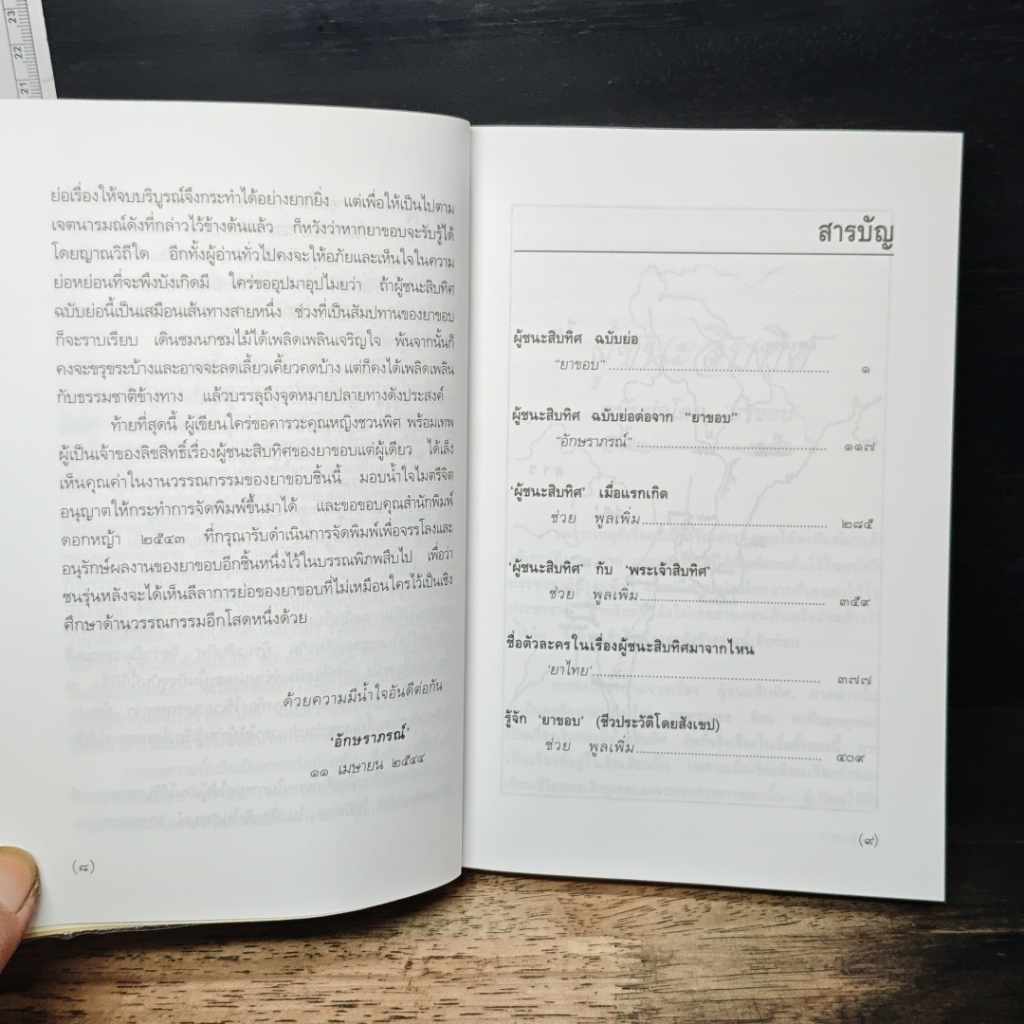 23
22
21
ย่อเรื่องให้จบบริบูรณ์จึงกระทำได้อย่างยากยิ่ง แต่เพื่อให้เป็นไปตาม
เจตนารมณ์ดังที่กล่าวไว้ข้างต้นแล้ว ก็หวังว่าหากยาขอบจะรับรู้ได้
โดยญาณวิถีใด อีกทั้งผู้อ่านทั่วไปคงจะให้อภัยและเห็นใจในความ
ย่อหย่อนที่จะพึงบังเกิดมี ใคร่ขออุปมาอุปไมยว่า ถ้าผู้ชนะสิบทิศ
ฉบับย่อนี้เป็นเสมือนเส้นทางสายหนึ่ง ช่วงที่เป็นสัมปทานของยาขอบ
ก็จะราบเรียบ เดินชมนกชมไม้ได้เพลิดเพลินเจริญใจ พ้นจากนั้นก็
คงจะขรุขระบ้างและอาจจะลดเลี้ยวเคี้ยวคดบ้าง แต่ก็คงได้เพลิดเพลิน
กับธรรมชาติข้างทาง แล้วบรรลุถึงจุดหมายปลายทางดังประสงค์
ท้ายที่สุดนี้ ผู้เขียนใคร่ขอคารวะคุณหญิงชวนพิศ พร้อมเทพ
ผู้เป็นเจ้าของลิขสิทธิ์เรื่องผู้ชนะสิบทิศของยาขอบแต่ผู้เดียว ได้เล็ง
เห็นคุณค่าในงานวรรณกรรมของยาขอบชิ้นนี้ มอบน้ำใจไมตรีจิต
อนุญาตให้กระทำการจัดพิมพ์ขึ้นมาได้ และขอขอบคุณสำนักพิมพ์
ดอกหญ้า ๒๕๔๓ ที่กรุณารับดำเนินการจัดพิมพ์เพื่อจรรโลงและ
อนุรักษ์ผลงานของยาขอบอีกชิ้นหนึ่งไว้ในบรรณพิภพสืบไป เพื่อว่า
ชนรุ่นหลังจะได้เห็นลีลาการย่อของยาขอบที่ไม่เหมือนใครไว้เป็นเชิง
ศึกษาด้านวรรณกรรมอีกโสดหนึ่งด้วย
ด้วยความมีน้ำใจอันดีต่อกัน
'อักษราภรณ์'
๑๑ เมษายน ๒๕๔๔
(๘)
สารบัญ
ผู้ชนะสิบทิศ ฉบับย่อ
"ยาขอบ" ๑
ผู้ชนะสิบทิศ ฉบับย่อต่อจาก "ยาขอบ"
"อักษราภรณ์" ๑๑๗
'ผู้ชนะสิบทิศ' เมื่อแรกเกิด
ช่วย พูลเพิ่ม ๒๘๕
'ผู้ชนะสิบทิศ' กับ 'พระเจ้าสิบทิศ'
ช่วย พูลเพิ่ม ๓๕๙
ชื่อตัวละครในเรื่องผู้ชนะสิบทิศมาจากไหน
'ยาไทย' ๓๗๗
รู้จัก 'ยาขอบ' (ชีวประวัติโดยสังเขป)
ช่วย พูลเพิ่ม ๔๐๙
(๙)